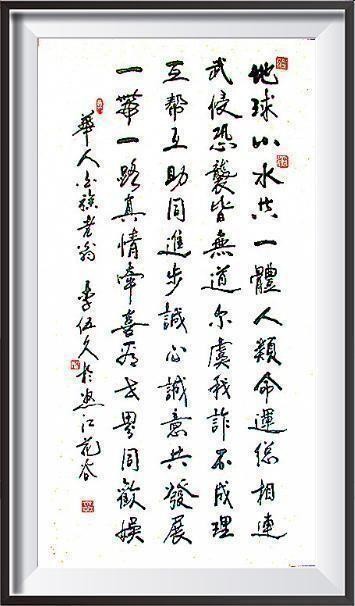 地球山水共一體人類命運總相連
武侵恐襲皆無道尔虞我詐不成理
互帮互助同進步誠心誠意共發展
一帶一路真情牽喜看世界同歡娛
華人白族老翁 李伍久於怒江花谷